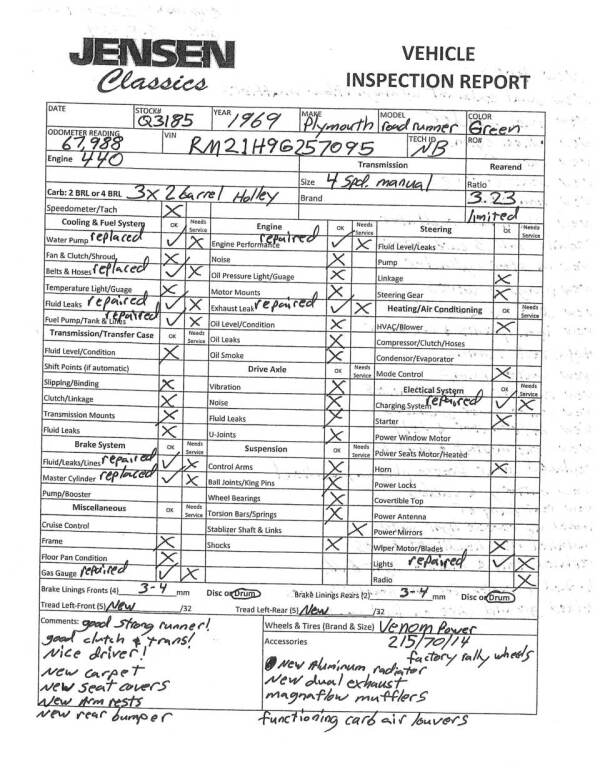 JENSEN
Classics
VEHICLE
INSPECTION REPORT
DATE STOCK# Q3185 YEAR 1969 MAKE Plymouth MODEL roadrunner COLOR Green
ODOMETER READING 67,988 VIN RM21H9G257095 TECH ID NB RO#
Engine 440 Transmission Rearend
Size 4 spd. manual Ratio 3.23
Carb: 2 BRL or 4 BRL 3x2 barrel Holley Brand limited
Speedometer/Tach X
Cooling & Fuel System OK Needs Service Engine OK Needs Service Steering OK Needs Service
Water Pump replaced ✓ X Engine Performance repaired ✓ X Fluid Level/Leaks
Fan & Clutch/Shroud X Noise X Pump
Belts & Hoses replaced ✓ X Oil Pressure Light/Guage X Linkage X
Temperature Light/Guage X Motor Mounts X Steering Gear X
Fluid Leaks repaired ✓ X Exhaust Leak repaired ✓ X Heating/Air Conditioning OK Needs Service
Fuel Pump/Tank & Lines repaired ✓ X Oil Level/Condition X HVAC/Blower X
Transmission/Transfer Case OK Needs Service Oil Leaks X Compressor/Clutch/Hoses
Fluid Level/Condition X Oil Smoke X Condensor/Evaporator
Shift Points (if automatic) Drive Axle OK Needs Service Mode Control X
Slipping/Binding X Vibration X Electical System OK Needs Service
Clutch/Linkage X Noise X Charging System repaired ✓ X
Transmission Mounts X Fluid Leaks X Starter X
Fluid Leaks X U-Joints X Power Window Motor
Brake System OK Needs Service Suspension OK Needs Service Power Seats Motor/Heated
Fluid/Leaks/Lines repaired ✓ X Control Arms X Horn X
Master Cylinder replaced ✓ X Ball Joints/King Pins X Power Locks
Pump/Booster Wheel Bearings X Covertible Top
Miscellaneous OK Needs Service Torsion Bars/Springs X Power Antenna
Cruise Control Stablizer Shaft & Links X Power Mirrors
Frame X Shocks X Wiper Motor/Blades X
Floor Pan Condition X Lights repaired ✓ X
Gas Gauge repaired ✓ X Radio X
Brake Linings Fronts (4) 3-4 mm Disc or Drum Brake Linings Rears (2) 3-4 mm Disc or Drum
Tread Left-Front (5) New /32 Tread Left-Rear (5) New /32
Comments: good strong runner!
good clutch & trans!
Nice driver!
New carpet
New seat covers
New Arm rests
New rear bumper
Wheels & Tires (Brand & Size) Venom Power
215/70/14
Accessories factory rally wheels
New Aluminum radiator
New dual exhaust
magnaflow mufflers
functioning carb air louvers